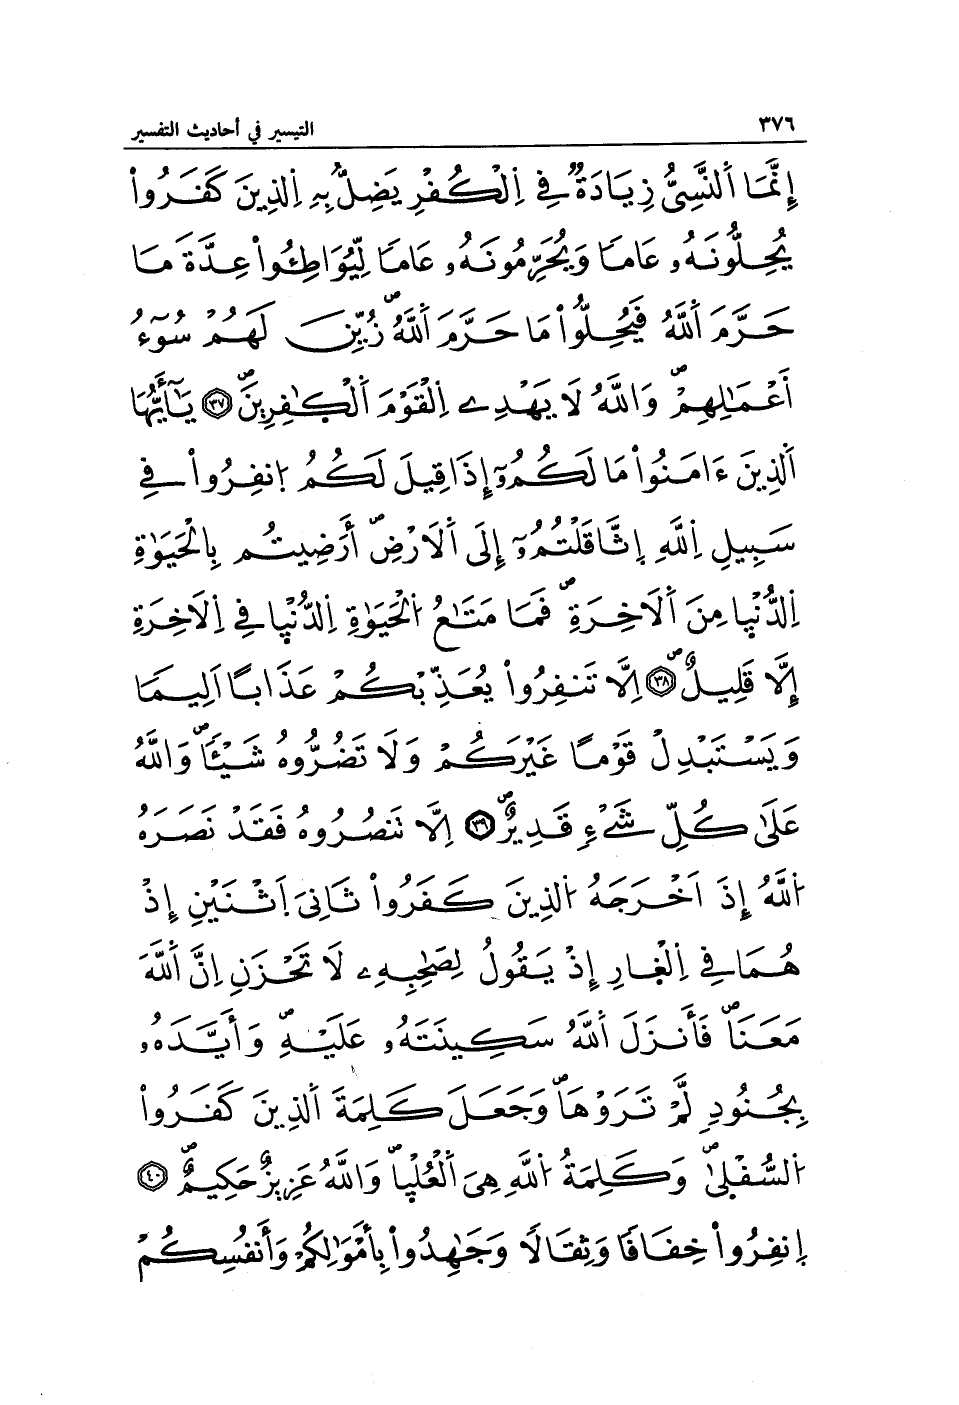 ٣٧٦ التيسير في أحاديث التفسير
إِنَّمَا اَ۬لنَّسِيُّ زِيَادَةٞ فِي اِ۬لْكُفْرِ يَضِلُّ بِهِ اِ۬لذِينَ كَفَرُواْ
يُحِلُّونَهُۥ عَاماٗ وَيُحَرِّمُونَهُۥ عَاماٗ لِّيُوَاطِـُٔواْ عِدَّةَ مَا
حَرَّمَ اَ۬للَّهُ فَيُحِلُّواْ مَا حَرَّمَ اَ۬للَّهُۖ زُيِّنَ لَهُمْ سُوٓءُ
أَعْمَٰلِهِمْۖ وَاللَّهُ لَا يَهْدِے اِ۬لْقَوْمَ اَ۬لْكَٰفِرِينَۖ ٣٧ يَٰٓأَيُّهَا
اَ۬لذِينَ ءَامَنُواْ مَا لَكُمُۥٓ إِذَا قِيلَ لَكُمُ اُ۪نفِرُواْ فِي
سَبِيلِ اِ۬للَّهِ اِ۪ثَّاقَلْتُمُۥٓ إِلَى اَ۬لَارْضِۖ أَرَضِيتُم بِالْحَيَوٰةِ
اِ۬لدُّنْيا مِنَ اَ۬لَاخِرَةِۖ فَمَا مَتَٰعُ اُ۬لْحَيَوٰةِ اِ۬لدُّنْيا فِي اِ۬لَاخِرَةِ
إِلَّا قَلِيلٌۖ ٣٨ اِلَّا تَنفِرُواْ يُعَذِّبْكُمْ عَذَاباً اَلِيماٗ
وَيَسْتَبْدِلْ قَوْماً غَيْرَكُمْ وَلَا تَضُرُّوهُ شَيْـٔاٗۖ وَاللَّهُ
عَلَىٰ كُلِّ شَےْءٖ قَدِيرٌۖ ٣٩ اِلَّا تَنصُرُوهُ فَقَدْ نَصَرَهُ
اُ۬للَّهُ إِذَ اَخْرَجَهُ اُ۬لذِينَ كَفَرُواْ ثَانِيَ اَ۪ثْنَيْنِ إِذْ
هُمَا فِي اِ۬لْغارِ إِذْ يَقُولُ لِصَٰحِبِهِۦ لَا تَحْزَنِ اِنَّ اَ۬للَّهَ
مَعَنَاۖ فَأَنزَلَ اَ۬للَّهُ سَكِينَتَهُۥ عَلَيْهِۖ وَأَيَّدَهُۥ
بِجُنُودٖ لَّمْ تَرَوْهَاۖ وَجَعَلَ كَلِمَةَ اَ۬لذِينَ كَفَرُواْ
اُ۬لسُّفْلىٰۖ وَكَلِمَةُ اُ۬للَّهِ هِيَ اَ۬لْعُلْياۖ وَاللَّهُ عَزِيزٌ حَكِيمٌۖ ٤٠
اِ۪نفِرُواْ خِفَافاٗ وَثِقَالاٗ وَجَٰهِدُواْ بِأَمْوَٰلِكُمْ وَأَنفُسِكُمْ